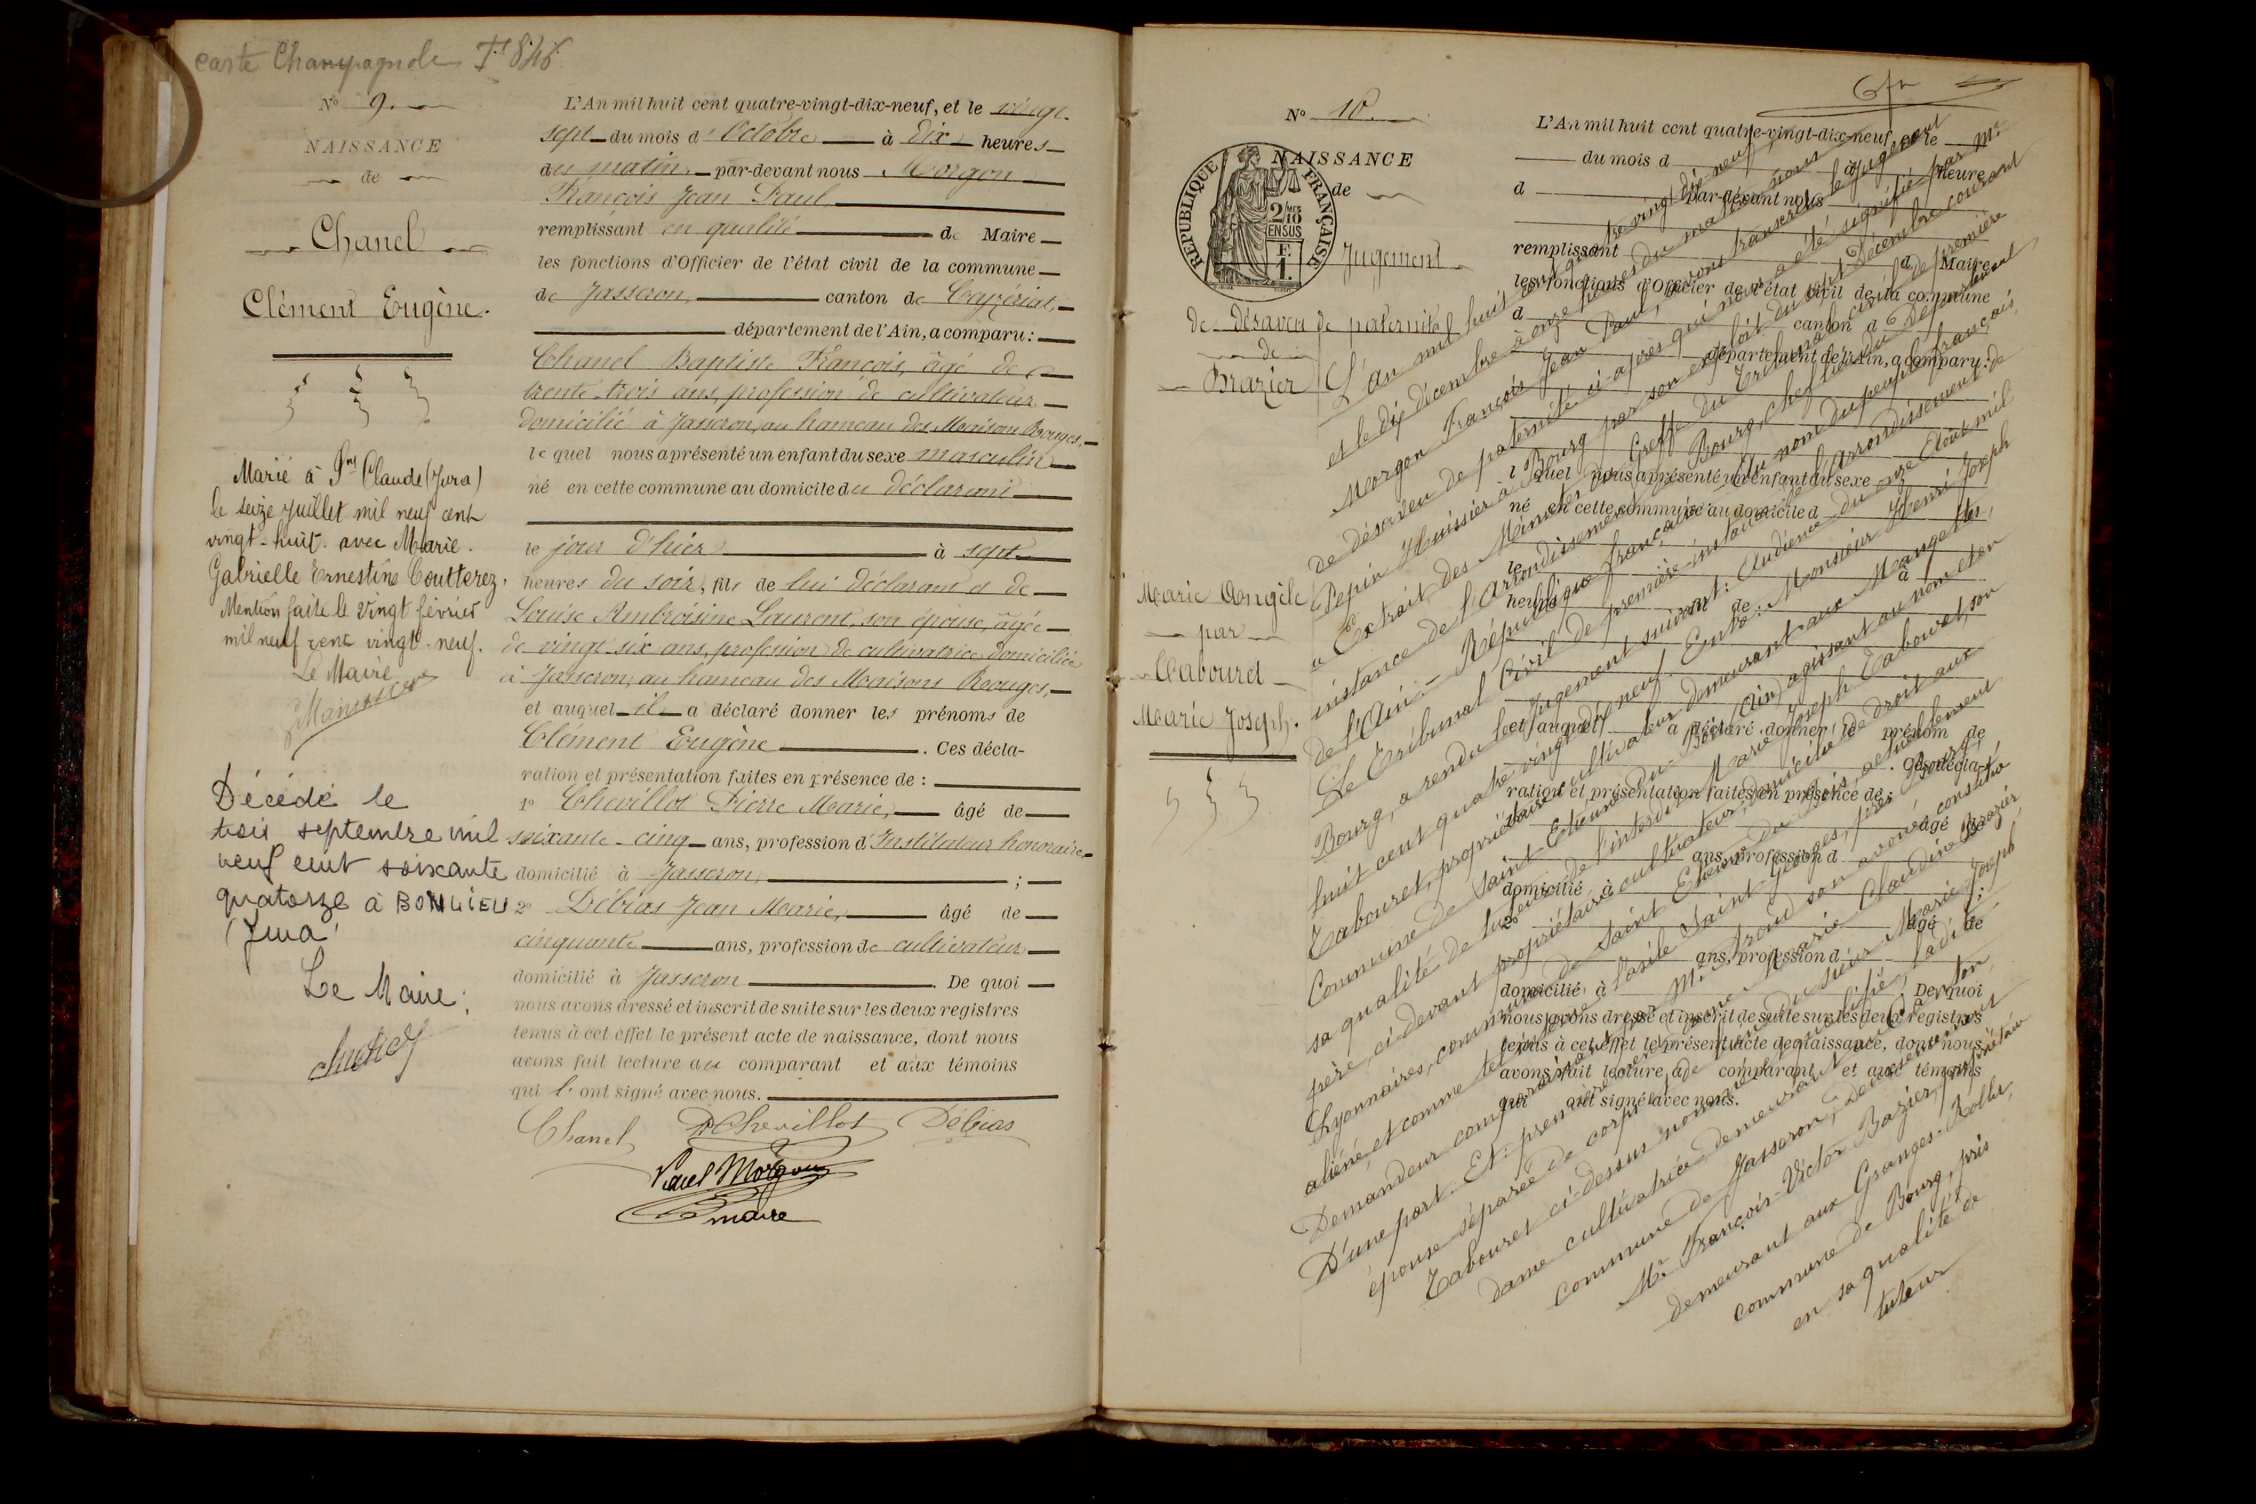 carte Champagnole
N° 9.
NAISSANCE
de
Chanel
Clément Eugène.
Marié à St Claude (Jura)
le seize juillet mil neuf cent
vingt-huit avec Marie
Gabrielle Ernestine Coutterez.
Mention faite le vingt février
mil neuf cent vingt-neuf.
Le Maire
Décédé le
trois septembre mil
neuf cent soixante
quatorze à BONLIEU
(Jura)
Le Maire:
L'An mil huit cent quatre-vingt-dix-neuf, et le vingt-
sept du mois d'Octobre à dix heures
du matin, par-devant nous Morgon
François Jean Paul
remplissant en qualité de Maire
les fonctions d'Officier de l'état civil de la commune
de Jasseron, canton de Ceyzériat,
département de l'Ain, a comparu:
Chanel Baptiste François, âgé de
trente-trois ans, profession de cultivateur
domicilié à Jasseron, au hameau des Maisons Rouges,
lequel nous a présenté un enfant du sexe masculin
né en cette commune au domicile du déclarant
le jour d'hier à sept
heures du soir, fils de lui déclarant et de
Louise Ambroisine Laurent, son épouse, âgée
de vingt-six ans, profession de cultivatrice domiciliée
à Jasseron, au hameau des Maisons Rouges,
et auquel il a déclaré donner les prénoms de
Clément Eugène. Ces décla-
ration et présentation faites en présence de:
1° Chevillot Pierre Marie, âgé de
soixante-cinq ans, profession d'Instituteur honoraire
domicilié à Jasseron;
2° Débias Jean Marie, âgé de
cinquante ans, profession de cultivateur
domicilié à Jasseron. De quoi
nous avons dressé et inscrit de suite sur les deux registres
tenus à cet effet le présent acte de naissance, dont nous
avons fait lecture au comparant et aux témoins
qui l'ont signé avec nous.
Chanel P Chevillot Débias
Paul Morgon
maire
N° 10
NAISSANCE
de
REPUBLIQUE FRANÇAISE
2/10 EN SUS
F.
1.
Jugement
de désaveu de paternité
de
Brazier
Marie Angèle
par
Tabouret
Marie Joseph.
L'An mil huit cent quatre-vingt-dix-neuf, et le
du mois d à heure
d par-devant nous
remplissant d Maire
les fonctions d'Officier de l'état civil de la commune
d canton d
département de l'Ain, a comparu:
l quel nous a présenté un enfant du sexe
né en cette commune au domicile d
le à
heure de
et auquel a déclaré donner le prénom de
. Ces décla-
ration et présentation faites en présence de:
1° âgé de
ans, profession d
domicilié à ;
2° âgé de
ans, profession d
domicilié à De quoi
nous avons dressé et inscrit de suite sur les deux registres
tenus à cet effet le présent acte de naissance, dont nous
avons fait lecture a comparant et aux témoins
qui ont signé avec nous.
L'an mil huit cent quatre vingt dix neuf
et le dix décembre à onze heures du matin nous
Morgon François Jean Paul, avons transcrit le Jugement
de désaveu de paternité ci-après qui nous a été signifié par Me
Pepin Huissier à Bourg par son exploit du sept Décembre courant
Extrait des Minutes du Greffe du Tribunal civil de première
instance de l'arrondissement de Bourg, chef lieu du Département
de l'Ain. République française. Au nom du peuple français.
Le Tribunal Civil de première instance de l'arrondissement de
Bourg, a rendu le Jugement suivant: Audience du onze Août mil
huit cent quatre vingt dix neuf. Entre: Monsieur Henri Joseph
Tabouret, propriétaire cultivateur demeurant aux Mangettes,
Commune de Saint-Etienne-du-Bois (Ain) agissant au nom et en
sa qualité de tuteur de l'interdit Marie Joseph Tabouret, son
père, ci-devant propriétaire cultivateur, domicilié de droit aux
Lyonnaires, commune de Saint Etienne du Bois, actuellement
aliéné, et comme tel interné à l'asile Saint-Georges, près Bourg,
Demandeur comparaissant par Me son avoué constitué
D'une part. Et: premièrement dame Marie Claudine Brazier
épouse séparée de corps et de biens du sieur Marie Joseph
Tabouret ci-dessus nommé et qualifié, ladite
dame cultivatrice demeurant au
commune de Jasseron; Deuxièmement
Mr François-Victor Bazier, propriétaire
demeurant aux Granges-Rollet,
commune de Bourg, pris
en sa qualité de
tuteur